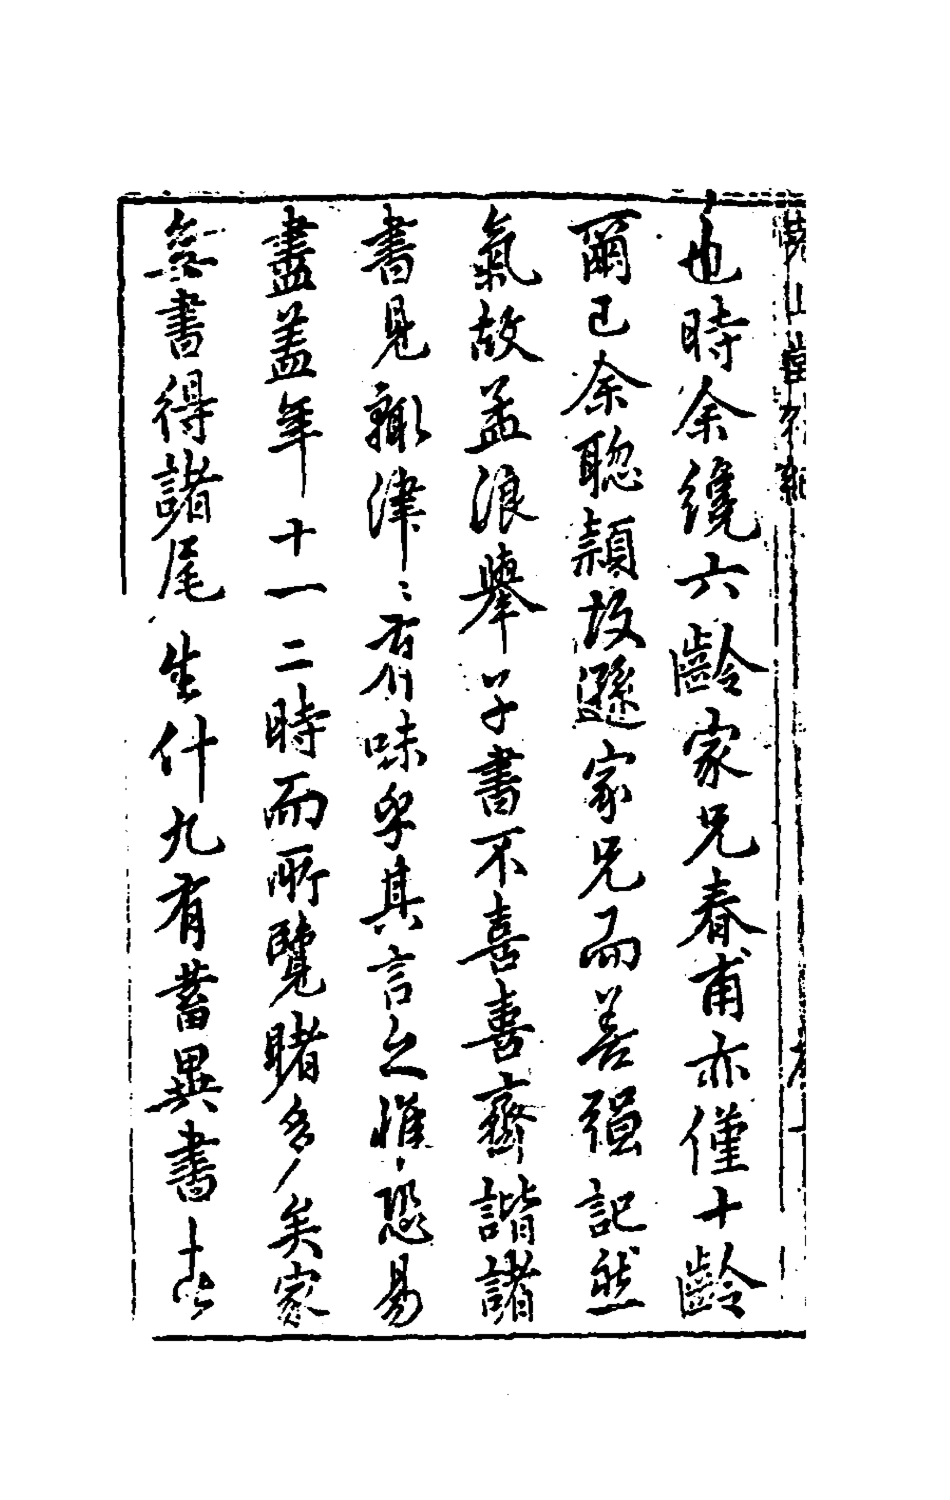 堯山堂外紀
也時余纔六齡家兄春甫亦僅十齡
爾已余聰頴故遜家兄而善強記然
氣故孟浪舉子書不喜喜齊諧諸
書見輒津〻有味乎其言之惟恐易
盡蓋年十一二時而所覽睹多〻矣家
無書得諸尾生什九有蓄異書者